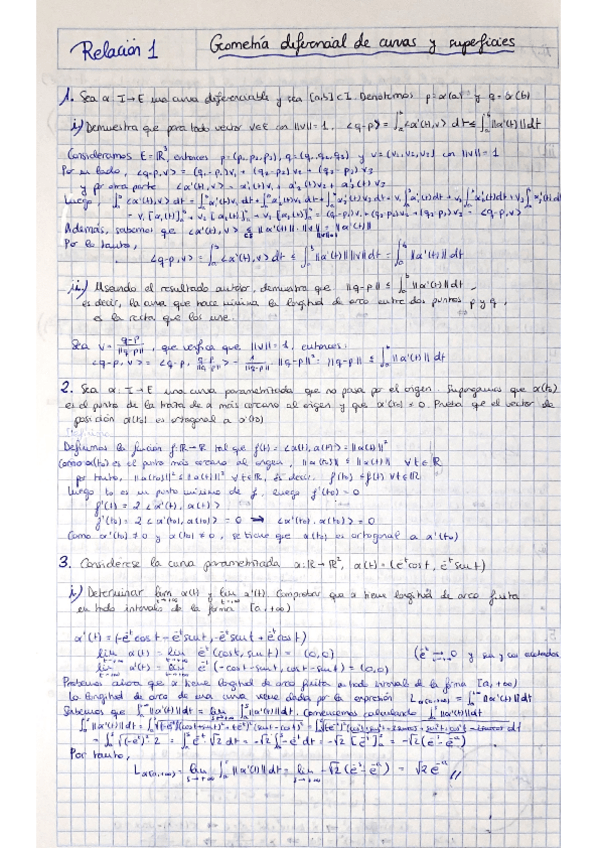 Relación 1
Geometría diferencial de curvas y superficies
1. Sea α: I→E una curva diferenciable y sea [a,b]⊂I. Denotemos p=α(a) y q=α(b)
i) Demuestra que para todo vector v∈E con ||v||=1, <q-p,v> = ∫ₐᵇ<α'(t),v> dt ≤ ∫ₐᵇ||α'(t)||dt
Consideramos E=ℝ³, entonces p=(p₁,p₂,p₃), q=(q₁,q₂,q₃) y v=(v₁,v₂,v₃) con ||v||=1
Por un lado, <q-p,v> = (q₁-p₁)v₁ + (q₂-p₂)v₂ + (q₃-p₃)v₃
y por otra parte <α'(t),v> = α'₁(t)v₁ + α'₂(t)v₂ + α'₃(t)v₃
Luego, ∫ₐᵇ<α'(t),v>dt =
= <q-p,v>
Además, sabemos que <α'(t),v> ≤ ||α'(t)||·||v|| = ||α'(t)||
Por lo tanto,
<q-p,v> = ∫ₐᵇ<α'(t),v>dt ≤ ∫ₐᵇ||α'(t)||||v||dt = ∫ₐᵇ||α'(t)||dt
ii) Usando el resultado anterior, demuestra que ||q-p|| ≤ ∫ₐᵇ||α'(t)||dt,
es decir, la curva que hace mínima la longitud de arco entre dos puntos p y q,
es la recta que los une.
Sea v = (q-p)/||q-p||, que verifica que ||v||=1, entonces:
<q-p,v> = <q-p, (q-p)/||q-p||> = 1/||q-p|| · ||q-p||² = ||q-p|| ≤ ∫ₐᵇ||α'(t)||dt
2. Sea α: I→E una curva parametrizada que no pasa por el origen. Supongamos que α(t₀)
es el punto de la traza de α más cercano al origen y que α'(t₀) ≠ 0. Prueba que el vector de
posición α(t₀) es ortogonal a α'(t₀)
Definimos la función f:ℝ→ℝ tal que f(t) = <α(t),α(t)> = ||α(t)||²
Como α(t₀) es el punto más cercano al origen, ||α(t₀)|| ≤ ||α(t)|| ∀t∈ℝ
por tanto, ||α(t₀)||² ≤ ||α(t)||² ∀t∈ℝ, es decir, f(t₀) ≤ f(t) ∀t∈ℝ
Luego t₀ es un punto mínimo de f, luego f'(t₀) = 0
f'(t) = 2<α'(t), α(t)>
f'(t₀) = 2<α'(t₀), α(t₀)> = 0 ⟹ <α'(t₀), α(t₀)> = 0
Como α'(t₀) ≠ 0 y α(t₀) ≠ 0, se tiene que α(t₀) es ortogonal a α'(t₀)
3. Considérese la curva parametrizada α:ℝ→ℝ², α(t) = (e⁻ᵗcost, e⁻ᵗsent)
i) Determinar lim α(t) y lim α'(t). Comprobar que α tiene longitud de arco finita
en todo intervalo de la forma [a,+∞)
α'(t) = (-e⁻ᵗcost - e⁻ᵗsent, -e⁻ᵗsent + e⁻ᵗcost)
lim α(t) = lim e⁻ᵗ(cost, sent) = (0,0) (e⁻ᵗ→0 y sen y cos acotadas
lim α'(t) = lim e⁻ᵗ(-cost-sent, cost-sent) = (0,0)
Probemos ahora que α tiene longitud de arco finita a todo intervalo de la forma [a,+∞)
La longitud de arco de una curva viene dada por la expresión L₍ₐ,₊∞₎ = ∫ₐ⁺∞||α'(t)||dt
Sabemos que ∫ₐ⁺∞||α'(t)||dt = lim ∫ₐˢ||α'(t)||dt. Comencemos calculando ∫ₐˢ||α'(t)||dt
= ∫ₐˢ√(-e⁻ᵗ)²·2 = ∫ₐˢ e⁻ᵗ√2 dt = -√2∫ₐˢ-e⁻ᵗdt = -√2[e⁻ᵗ]ₐˢ = -√2(e⁻ˢ-e⁻ᵃ)
Por tanto,
L₍ₐ,₊∞₎ = lim ∫ₐˢ||α'(t)||dt = lim -√2(e⁻ˢ-e⁻ᵃ) = √2e⁻ᵃ //